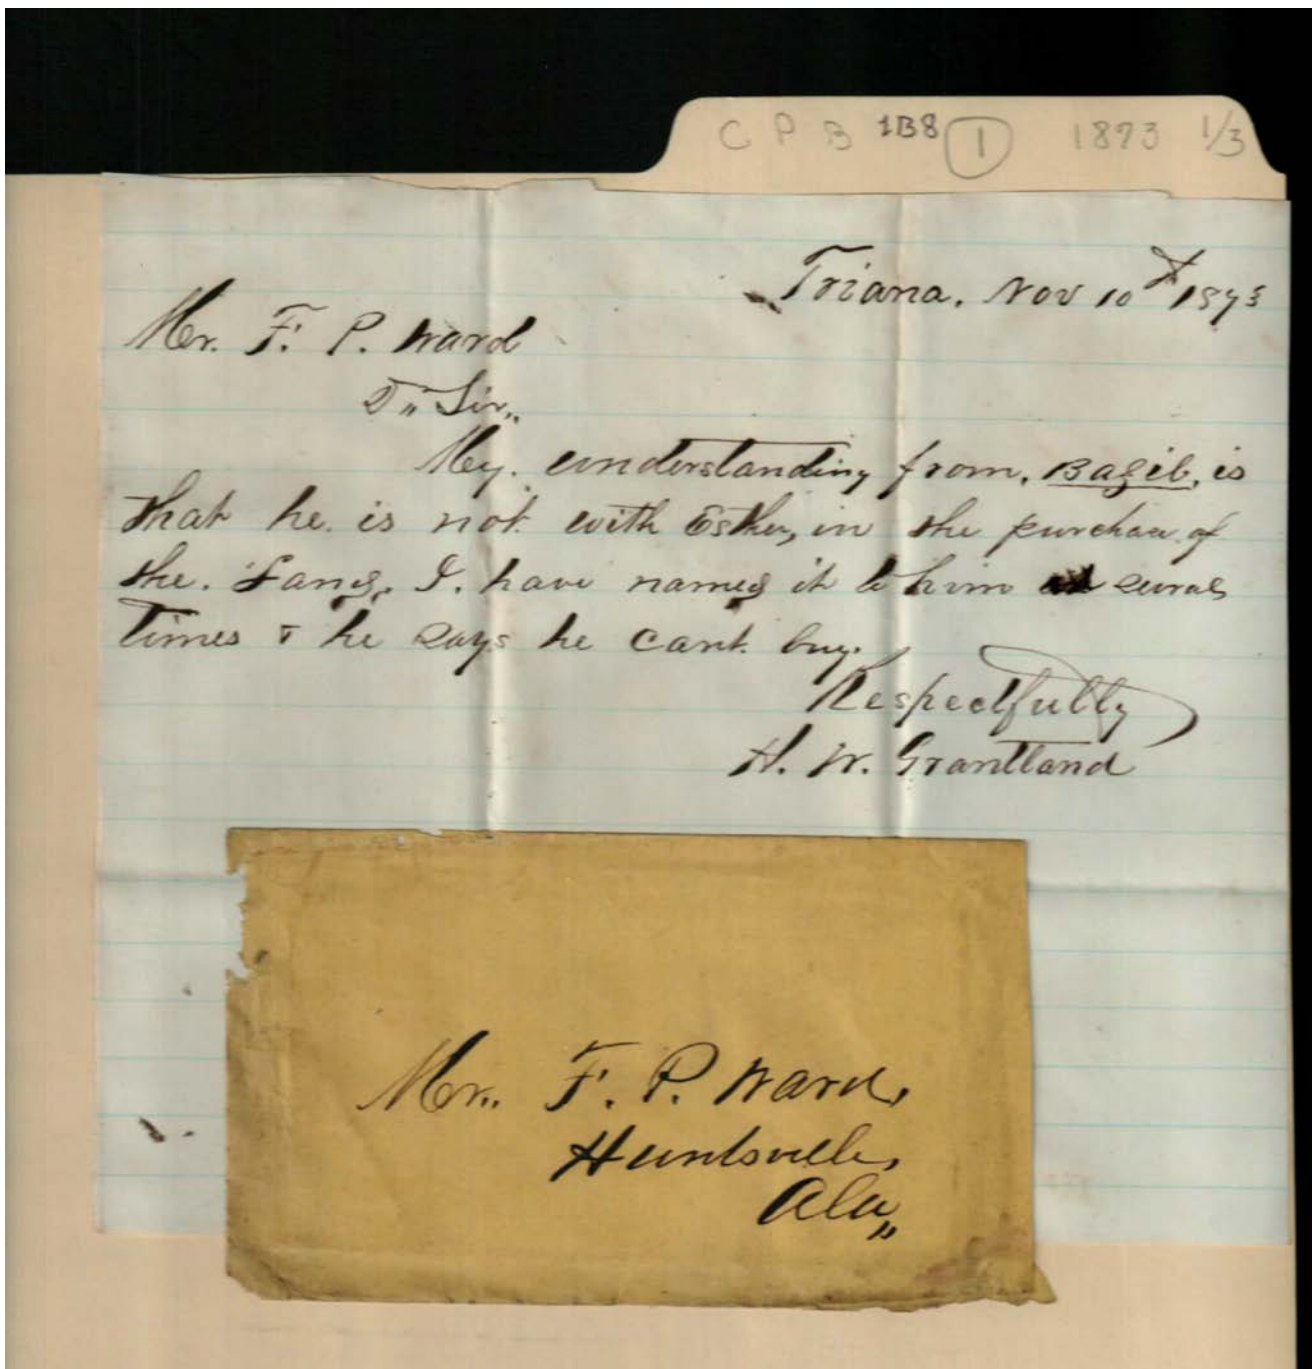 C P B 1B8 1 1873 1/3
Triana, Nov 10th 1873
Mr. F. P. Ward
Dr Sir,,
My. understanding from, Bazil, is
that he. is not with Esther, in the purchase of
the. Land, I. have named it to him several
times & he says he cant. buy.
Respectfully
H. W. Grantland
Mr.. F. P. Ward,
Huntsville,
Ala,,